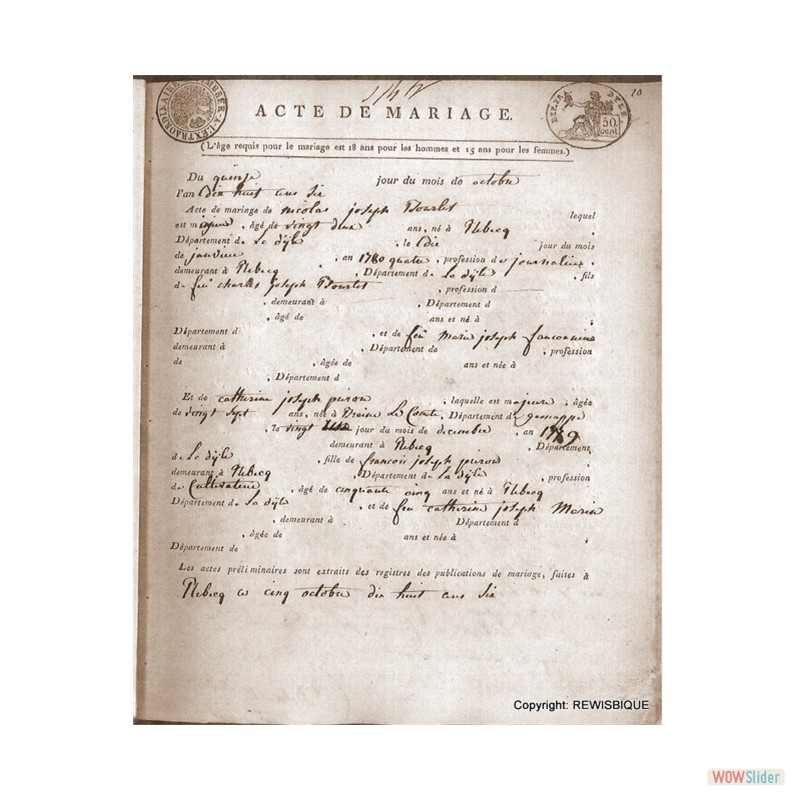 10
TIMBRE A L'EXTRAORDINAIRE
50 cent.
ACTE DE MARIAGE.
(L'âge requis pour le mariage est 18 ans pour les hommes et 15 ans pour les femmes.)
Du quinze jour du mois de octobre
l'an dix huit cens six
Acte de mariage de nicolas joseph lequel
est majeure, âgé de vingt deux ans, né à Rebecq
Département de La dÿle, le dix jour du mois
de janvier, an 1780 quatre, profession de journalier,
demeurant à Rebecq, Département de La dÿle, fils
de feu charles joseph, profession d
, demeurant à, Département d
, âgé de ans et né à
Département d, et de feu Marie joseph
demeurant à, Département de, profession
de, âgée de ans et née à
, Département d
Et de catherine joseph, laquelle est majeure, âgée
de vingt sept ans, née à Braine Le Comte, Département de gemappe
, le vingt jour du mois de decembre, an
demeurant à Rebecq, Département
de La dÿle, fille de francois joseph
demeurant à Rebecq, Département de La dÿle, profession
de Cultivateur, âgé de cinquante cinq ans et né à Rebecq
Département de La dÿle, et de feu catherine joseph Marin
, demeurant à Département d
, âgée de ans et née à
Département de
Les actes préliminaires sont extraits des registres des publications de mariage, faites à
Rebecq le cinq octobre dix huit cens six
Copyright: REWISBIQUE
WOWSlider